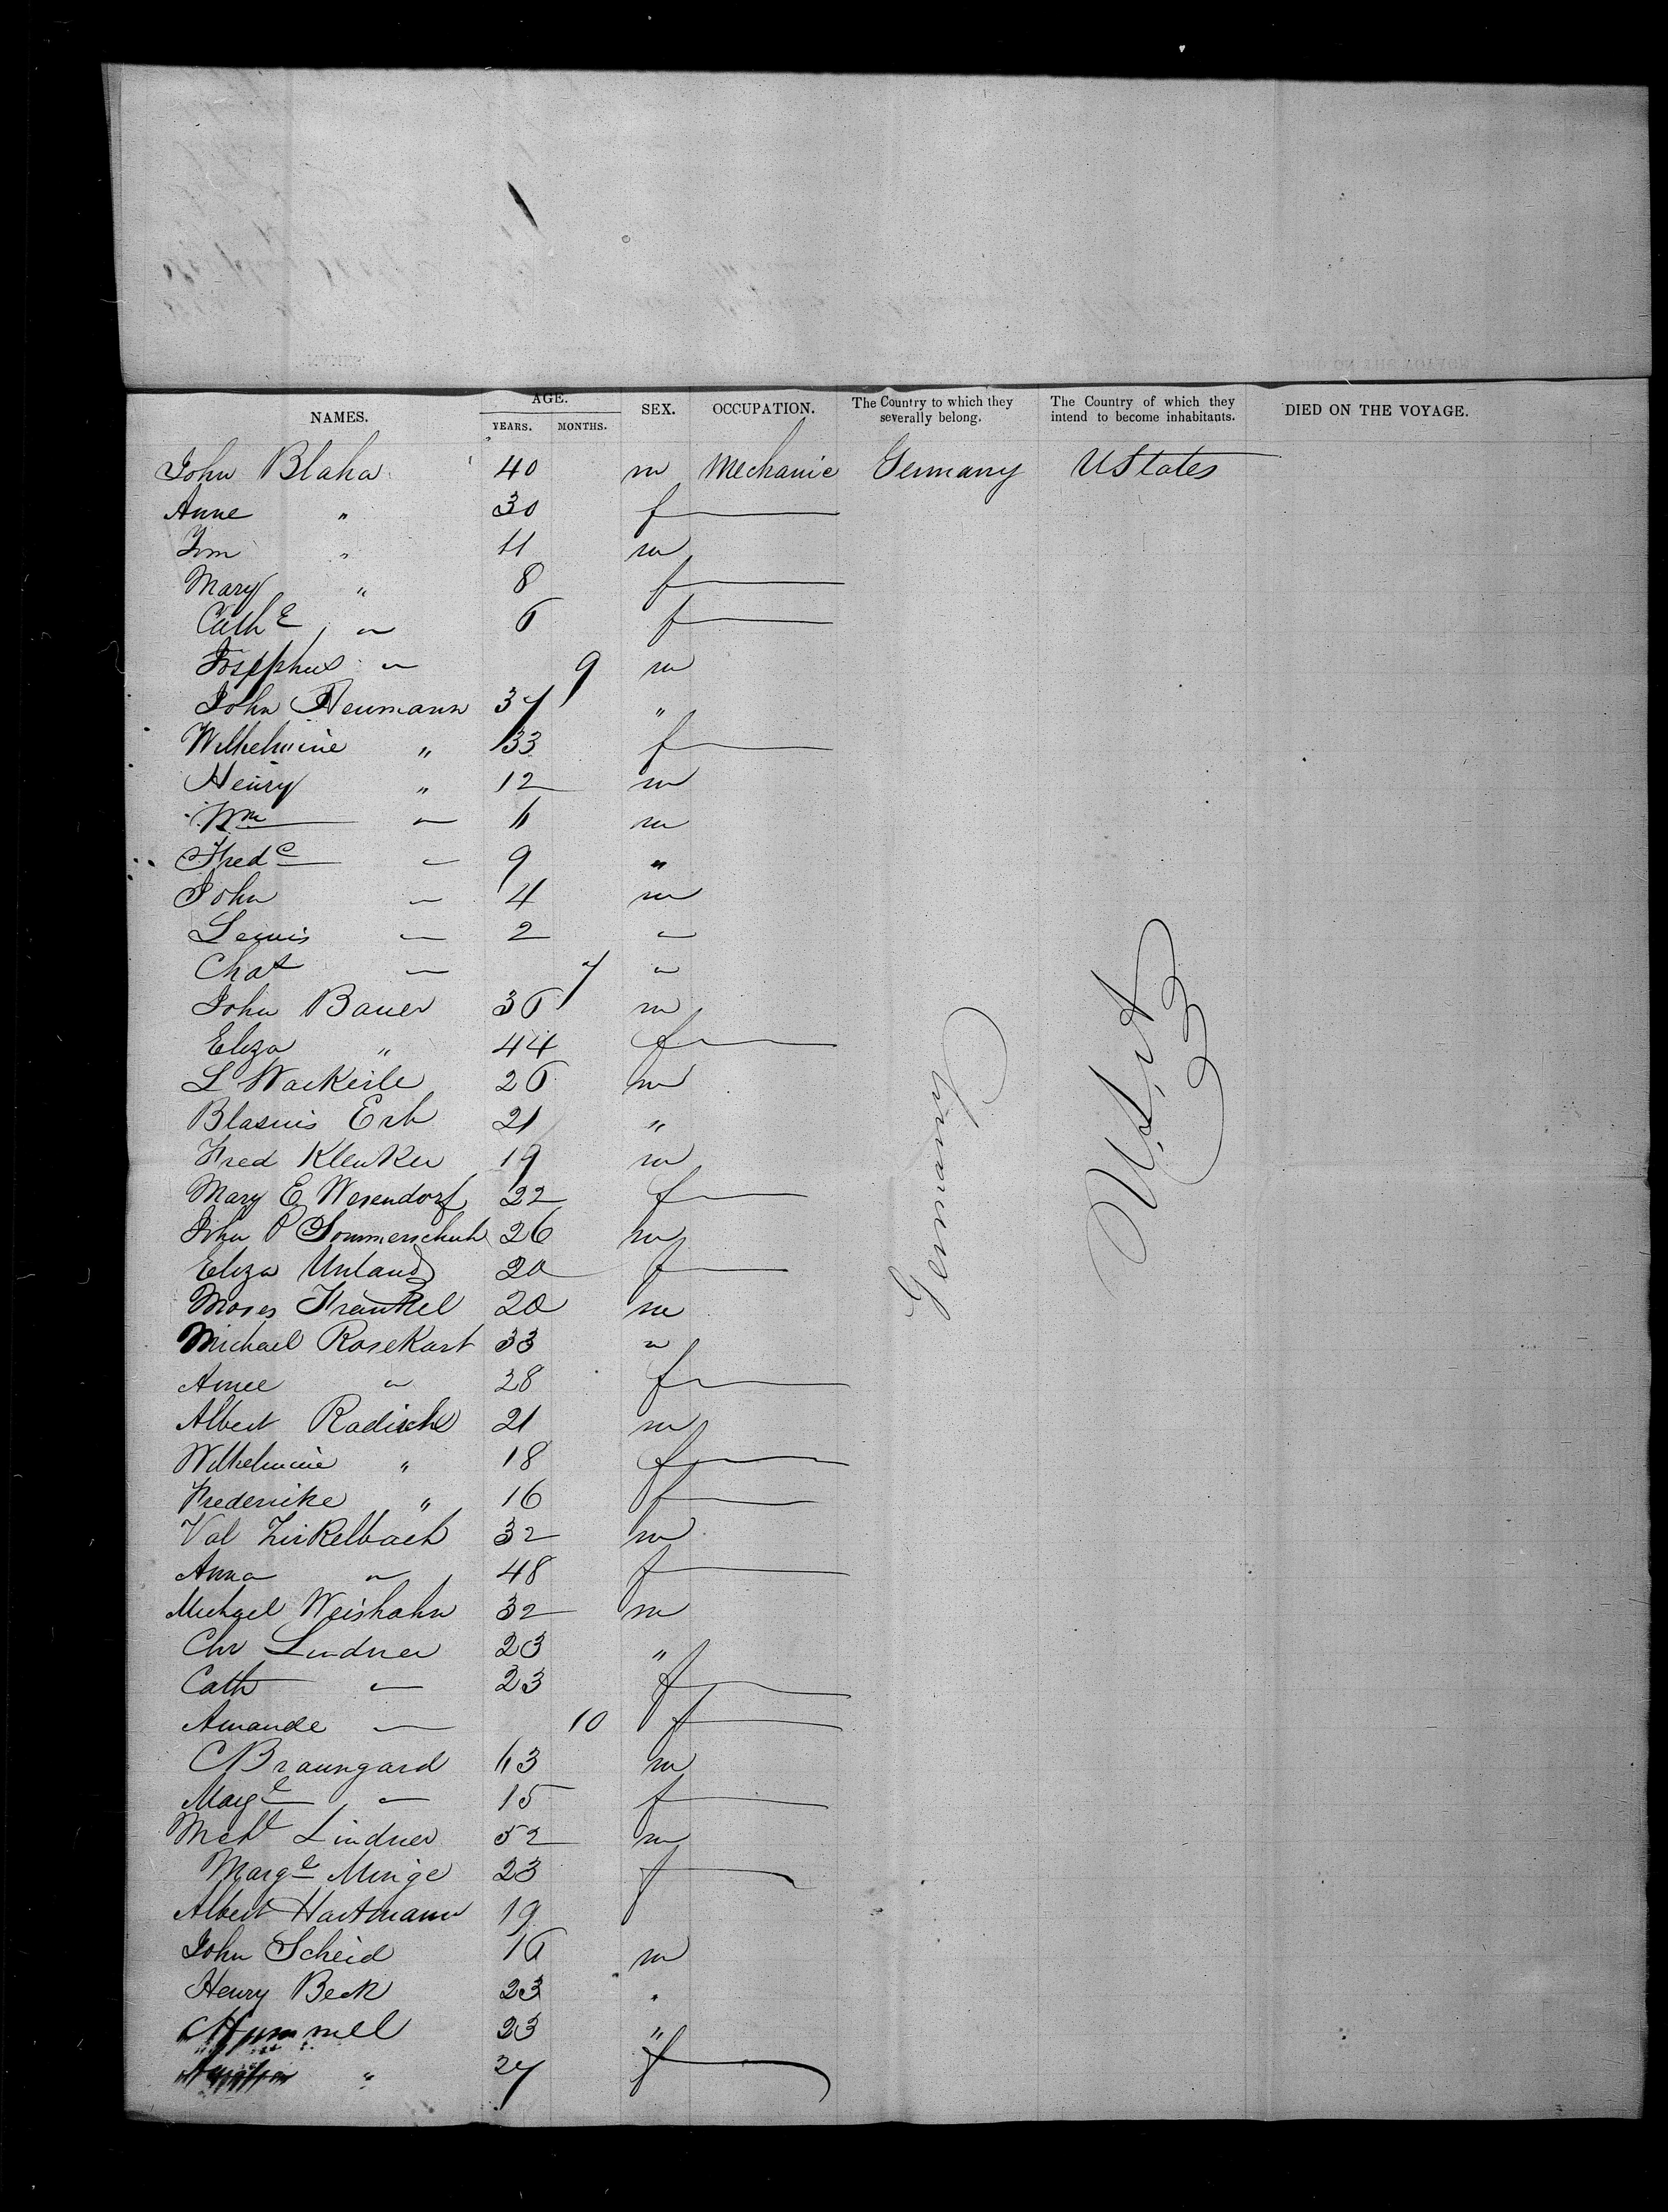 NAMES. AGE. SEX. OCCUPATION. The Country to which they severally belong. The Country of which they intend to become inhabitants. DIED ON THE VOYAGE.
YEARS. MONTHS.
John Blaha 40 m Mechanic Germany UStates
Anne " 30 f
" 11 m
Mary " 8 f
Cathe " 6 f
Josephus " 9 m
John Neumann 37 "
Wilhelmine " 33 f
Henry " 12 m
Wm " 11 m
Fredc " 9 "
John " 4 m
Lewis " 2 "
Chas " 7 "
John Bauer 36 m
Eliza " 44 f
L Wackerle 26 m
Blasius Erb 21 "
Fred Klenker 19 m
Mary E Wesendorf 22 f
John P Sommerschuh 26 m
Eliza Unland 20 f
Moses Frankel 20 m
Michael Rosekart 33 "
" 28 f
Albert Radische 21 m
Wilhelmine " 18 f
Frederike " 16 f
Val Zirkelbach 32 m
Anna " 48 f
Michael Weishahn 32 m
Chr Lindner 23 "
Cath " 23 f
Amande " 10 f
C Braungard 43 m
Marge " 15 f
Mchl Lindner 52 m
Marge Minge 23 f
Albert Hartmann 19
John Scheid 16 m
Henry Beck 23 "
Hummel 23 "
" 27 f
Germany
U. St